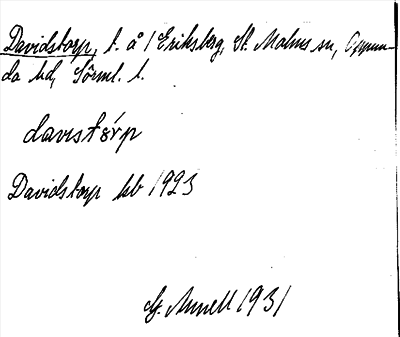 Davidstorp, t. å / Eriksberg, St. Malms sn, Oppun-
da hd, Sörml. l.
davistôrp
Davidstorp kb 1923
G. Annell 1931